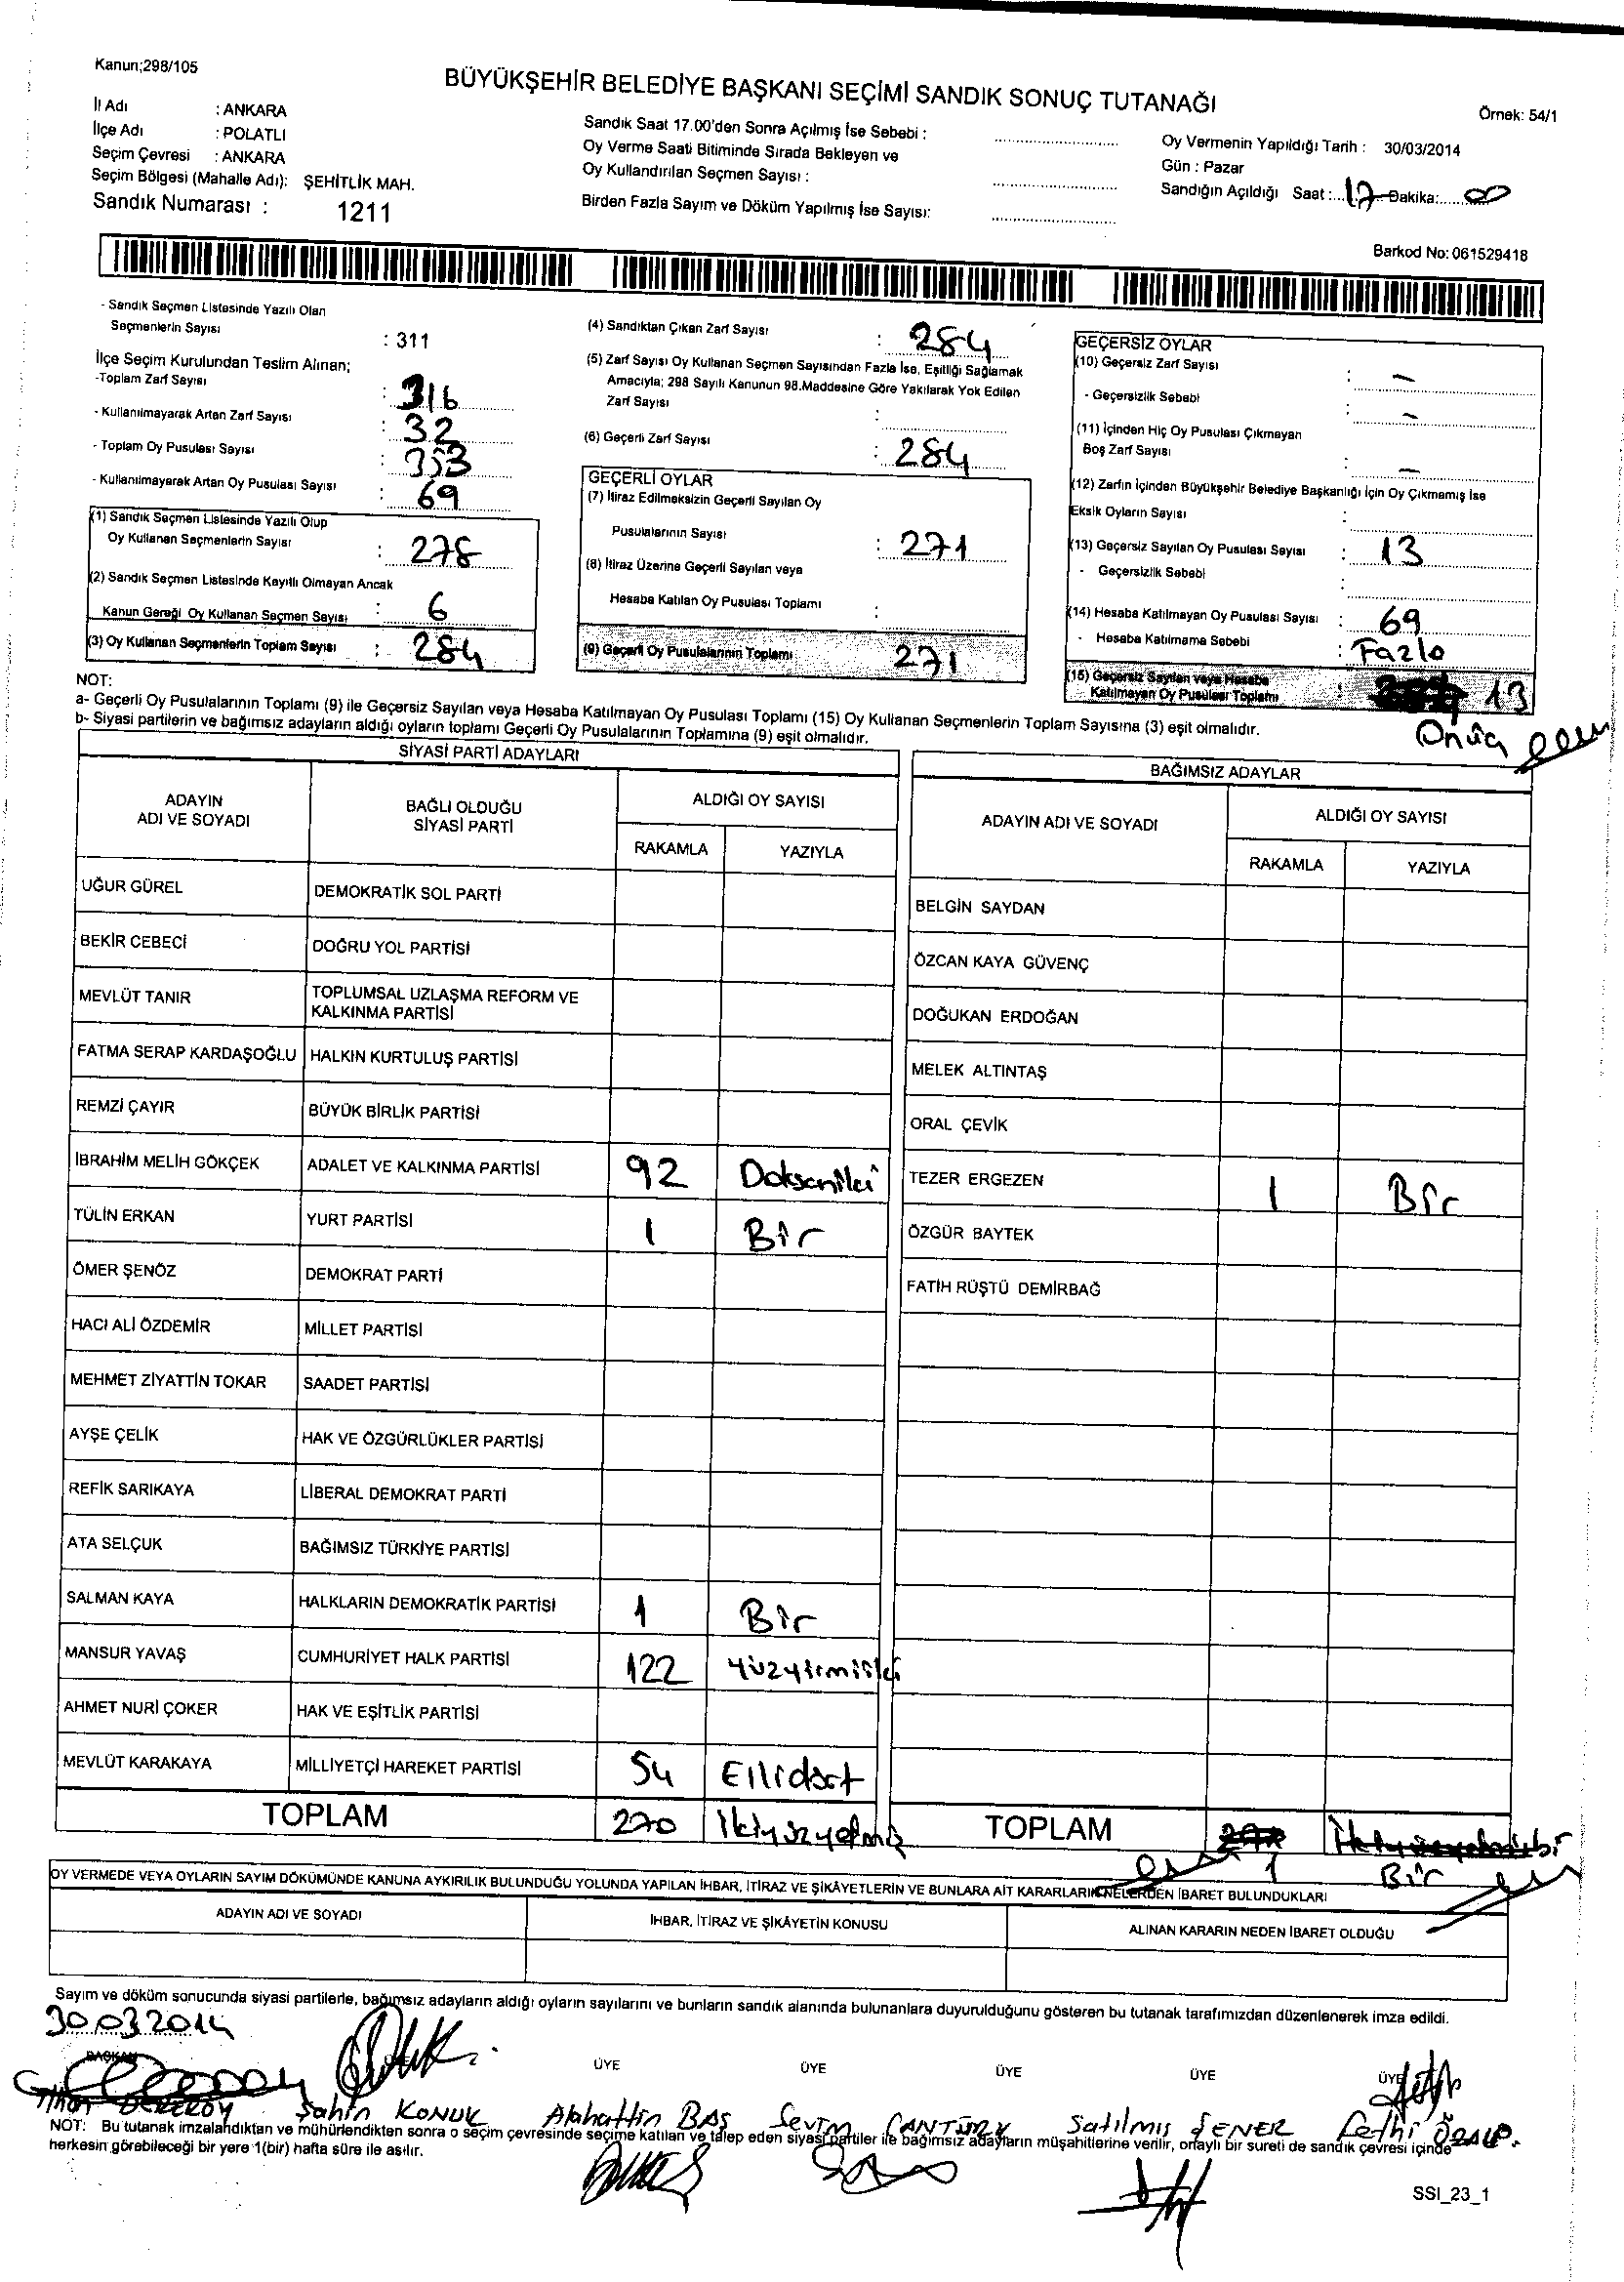 Kanun;298/105
BÜYÜKŞEHİR BELEDİYE BAŞKANI SEÇİMİ SANDIK SONUÇ TUTANAĞI
Örnek: 54/1
İl Adı : ANKARA
İlçe Adı : POLATLI
Seçim Çevresi : ANKARA
Seçim Bölgesi (Mahalle Adı): ŞEHİTLİK MAH.
Sandık Numarası : 1211
Sandık Saat 17.00'den Sonra Açılmış İse Sebebi :
Oy Verme Saati Bitiminde Sırada Bekleyen ve
Oy Kullandırılan Seçmen Sayısı :
Birden Fazla Sayım ve Döküm Yapılmış İse Sayısı:
Oy Vermenin Yapıldığı Tarih : 30/03/2014
Gün : Pazar
Sandığın Açıldığı Saat : 17 Dakika: 00
Barkod No: 061529418
- Sandık Seçmen Listesinde Yazılı Olan
Seçmenlerin Sayısı : 311
İlçe Seçim Kurulundan Teslim Alınan;
-Toplam Zarf Sayısı : 316
- Kullanılmayarak Artan Zarf Sayısı : 32
- Toplam Oy Pusulası Sayısı : 353
- Kullanılmayarak Artan Oy Pusulası Sayısı : 69
(1) Sandık Seçmen Listesinde Yazılı Olup
Oy Kullanan Seçmenlerin Sayısı : 278
(2) Sandık Seçmen Listesinde Kayıtlı Olmayan Ancak
Kanun Gereği Oy Kullanan Seçmen Sayısı : 6
(3) Oy Kullanan Seçmenlerin Toplam Sayısı : 284
(4) Sandıktan Çıkan Zarf Sayısı : 284
(5) Zarf Sayısı Oy Kullanan Seçmen Sayısından Fazla İse, Eşitliği Sağlamak
Amacıyla; 298 Sayılı Kanunun 98.Maddesine Göre Yakılarak Yok Edilen
Zarf Sayısı :
(6) Geçerli Zarf Sayısı : 284
GEÇERLİ OYLAR
(7) İtiraz Edilmeksizin Geçerli Sayılan Oy
Pusulalarının Sayısı : 271
(8) İtiraz Üzerine Geçerli Sayılan veya
Hesaba Katılan Oy Pusulası Toplamı :
(9) Geçerli Oy Pusulalarının Toplamı 271
GEÇERSİZ OYLAR
(10) Geçersiz Zarf Sayısı : –
- Geçersizlik Sebebi : –
(11) İçinden Hiç Oy Pusulası Çıkmayan
Boş Zarf Sayısı : –
(12) Zarfın İçinden Büyükşehir Belediye Başkanlığı İçin Oy Çıkmamış İse
Eksik Oyların Sayısı :
(13) Geçersiz Sayılan Oy Pusulası Sayısı : 13
- Geçersizlik Sebebi :
(14) Hesaba Katılmayan Oy Pusulası Sayısı : 69
- Hesaba Katılmama Sebebi : Fazla
(15) Geçersiz Sayılan veya Hesaba
Katılmayan Oy Pusulası Toplamı : 13
Onüç
NOT:
a- Geçerli Oy Pusulalarının Toplamı (9) ile Geçersiz Sayılan veya Hesaba Katılmayan Oy Pusulası Toplamı (15) Oy Kullanan Seçmenlerin Toplam Sayısına (3) eşit olmalıdır.
b- Siyasi partilerin ve bağımsız adayların aldığı oyların toplamı Geçerli Oy Pusulalarının Toplamına (9) eşit olmalıdır.
SİYASİ PARTİ ADAYLARI
ADAYIN ADI VE SOYADI BAĞLI OLDUĞU SİYASİ PARTİ ALDIĞI OY SAYISI
RAKAMLA YAZIYLA
UĞUR GÜREL DEMOKRATİK SOL PARTİ
BEKİR CEBECİ DOĞRU YOL PARTİSİ
MEVLÜT TANIR TOPLUMSAL UZLAŞMA REFORM VE KALKINMA PARTİSİ
FATMA SERAP KARDAŞOĞLU HALKIN KURTULUŞ PARTİSİ
REMZİ ÇAYIR BÜYÜK BİRLİK PARTİSİ
İBRAHİM MELİH GÖKÇEK ADALET VE KALKINMA PARTİSİ 92 Doksaniki
TÜLİN ERKAN YURT PARTİSİ 1 Bir
ÖMER ŞENÖZ DEMOKRAT PARTİ
HACI ALİ ÖZDEMİR MİLLET PARTİSİ
MEHMET ZİYATTİN TOKAR SAADET PARTİSİ
AYŞE ÇELİK HAK VE ÖZGÜRLÜKLER PARTİSİ
REFİK SARIKAYA LİBERAL DEMOKRAT PARTİ
ATA SELÇUK BAĞIMSIZ TÜRKİYE PARTİSİ
SALMAN KAYA HALKLARIN DEMOKRATİK PARTİSİ 1 Bir
MANSUR YAVAŞ CUMHURİYET HALK PARTİSİ 122 Yüzyirmiiki
AHMET NURİ ÇOKER HAK VE EŞİTLİK PARTİSİ
MEVLÜT KARAKAYA MİLLİYETÇİ HAREKET PARTİSİ 54 Ellidört
TOPLAM 270 İkiyüzyetmiş
BAĞIMSIZ ADAYLAR
ADAYIN ADI VE SOYADI ALDIĞI OY SAYISI
RAKAMLA YAZIYLA
BELGİN SAYDAN
ÖZCAN KAYA GÜVENÇ
DOĞUKAN ERDOĞAN
MELEK ALTINTAŞ
ORAL ÇEVİK
TEZER ERGEZEN 1 Bir
ÖZGÜR BAYTEK
FATİH RÜŞTÜ DEMİRBAĞ
TOPLAM
1 Bir
OY VERMEDE VEYA OYLARIN SAYIM DÖKÜMÜNDE KANUNA AYKIRILIK BULUNDUĞU YOLUNDA YAPILAN İHBAR, İTİRAZ VE ŞİKÂYETLERİN VE BUNLARA AİT KARARLARIN NELERDEN İBARET BULUNDUKLARI
ADAYIN ADI VE SOYADI İHBAR, İTİRAZ VE ŞİKÂYETİN KONUSU ALINAN KARARIN NEDEN İBARET OLDUĞU
Sayım ve döküm sonucunda siyasi partilerle, bağımsız adayların aldığı oyların sayılarını ve bunların sandık alanında bulunanlara duyurulduğunu gösteren bu tutanak tarafımızdan düzenlenerek imza edildi.
30.03.2014
BAŞKAN ÜYE ÜYE ÜYE ÜYE ÜYE
Şahin KONUK Alahattin BAŞ Sevim CANTÜRK Satılmış ŞENER Fethi ÖZALP.
NOT: Bu tutanak imzalandıktan ve mühürlendikten sonra o seçim çevresinde seçime katılan ve talep eden siyasi partiler ile bağımsız adayların müşahitlerine verilir, onaylı bir sureti de sandık çevresi içinde
herkesin görebileceği bir yere 1(bir) hafta süre ile asılır.
SSI_23_1